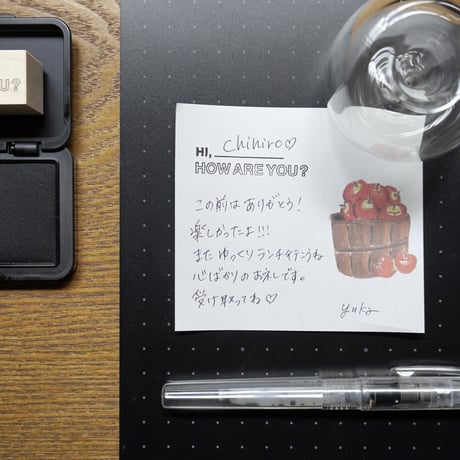 U?
HI, Chihiro♡
HOW ARE YOU?
この前はありがとう!
楽しかったよ!!!
またゆっくりランチ行こうね
心ばかりのお礼です。
受け取ってね♡
yuka